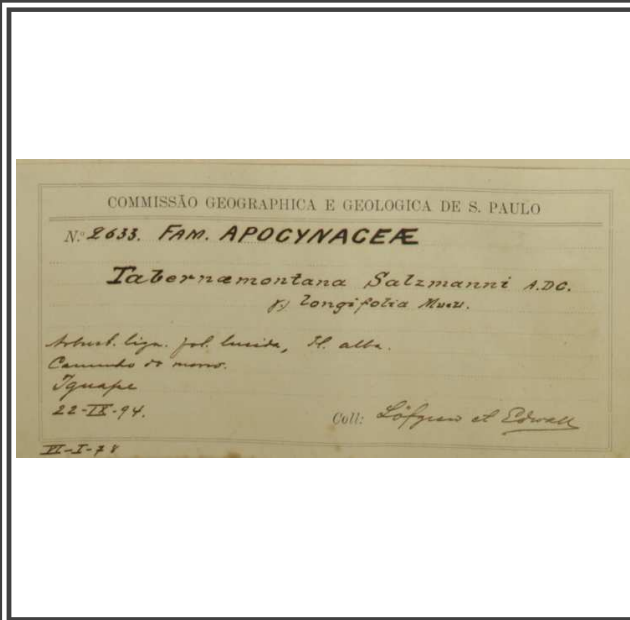 COMMISSÃO GEOGRAPHICA E GEOLOGICA DE S. PAULO
N.º 2633. FAM. APOCYNACEÆ
Tabernæmontana Salzmanni A.DC.
longifolia
Arbust. lign. fol. lucida, fl. alba.
Caminho do morro.
Iguape
22-IX-94.
Coll: Löfgren et Edwall